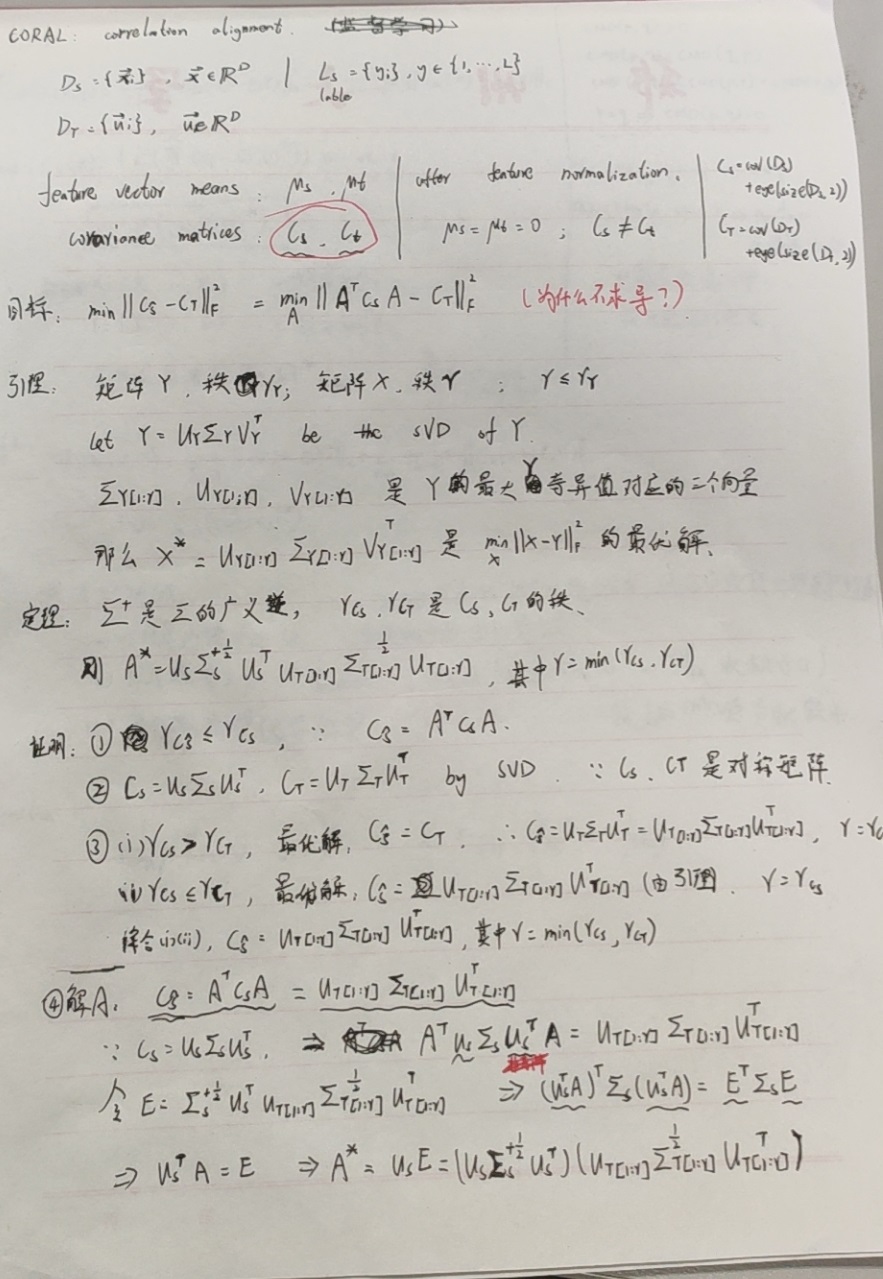 CORAL: correlation alignment. (监督学习)
D_S = {x⃗_i}, x⃗ ∈ ℝ^D | L_S = {y_i}, y ∈ {1,⋯,L}
lable
D_T = {u⃗_i}, u⃗ ∈ ℝ^D
feature vector means: μ_s, μ_t | after feature normalization, | C_S = cov(D_S) + eye(size(D_S, 2))
covariance matrices: C_s, C_t | μ_s = μ_t = 0; C_s ≠ C_t | C_T = cov(D_T) + eye(size(D_T, 2))
目标: min‖C_Ŝ − C_T‖²_F = min_A ‖A^T C_S A − C_T‖²_F (为什么不求导?)
引理: 矩阵 Y, 秩 r_Y; 矩阵 X, 秩 r; r ≤ r_Y
let Y = U_Y Σ_Y V_Y^T be the SVD of Y.
Σ_Y[1:r], U_Y[1:r], V_Y[1:r] 是 Y 的最大 r 奇异值对应的三个向量
那么 X* = U_Y[1:r] Σ_Y[1:r] V_Y[1:r]^T 是 min_X ‖X−Y‖²_F 的最优解、
定理: Σ^+ 是 Σ 的广义逆, r_CS, r_CT 是 C_S, C_T 的秩、
则 A* = U_S Σ_S^{+½} U_S^T U_T[1:r] Σ_T[1:r]^{½} U_T[1:r], 其中 r = min(r_CS, r_CT)
证明: ① r_CŜ ≤ r_CS, ∵ C_Ŝ = A^T C_S A.
② C_S = U_S Σ_S U_S^T, C_T = U_T Σ_T U_T^T by SVD. ∵ C_S、C_T 是对称矩阵
③ (i) r_CS > r_CT, 最优解, C_Ŝ = C_T. ∴ C_Ŝ = U_T Σ_T U_T^T = U_T[1:r] Σ_T[1:r] U_T[1:r]^T, r = r_C
(ii) r_CS ≤ r_CT, 最优解, C_Ŝ = U_T[1:r] Σ_T[1:r] U_T[1:r]^T (由引理. r = r_CS
综合(i)(ii), C_Ŝ = U_T[1:r] Σ_T[1:r] U_T[1:r]^T, 其中 r = min(r_CS, r_CT)
④ 解A. C_Ŝ = A^T C_S A = U_T[1:r] Σ_T[1:r] U_T[1:r]^T
∵ C_S = U_S Σ_S U_S^T, ⇒ A^T U_S Σ_S U_S^T A = U_T[1:r] Σ_T[1:r] U_T[1:r]^T
令 E = Σ_S^{+½} U_S^T U_T[1:r] Σ_T[1:r]^{½} U_T[1:r]^T ⇒ (U_S^T A)^T Σ_S (U_S^T A) = E^T Σ_S E
⇒ U_S^T A = E ⇒ A* = U_S E = (U_S Σ_S^{+½} U_S^T)(U_T[1:r] Σ_T[1:r]^{½} U_T[1:r]^T)